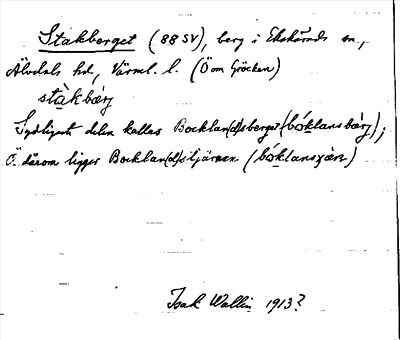 Stakberget (88 SV), berg i Ekshärads sn,
Älvdals hd, Värml. l. (Ö om Gröcken)
stàkbærj
Sydligaste delen kallas Bocklan(d)sberget (bóklansbærj);
Ö. därom ligger Bocklan(d)stjärnen (bóklansҫærn)
Isak Wallin 1913?